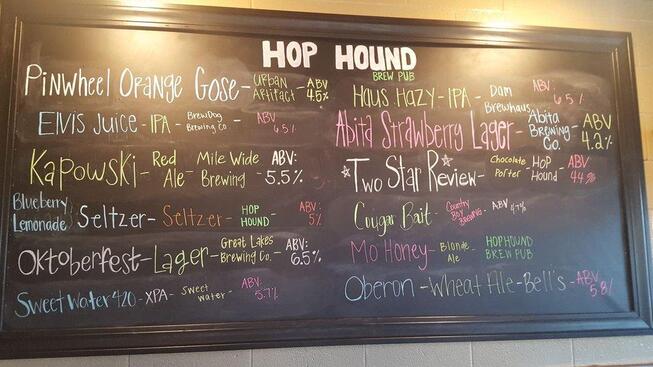 HOP HOUND
BREW PUB
PinWheel Orange Gose - Urban Artifact - ABV 4.5%
Elvis Juice - IPA - BrewDog Brewing Co - ABV 6.5%
Kapowski - Red Ale - Mile Wide Brewing - ABV: 5.5%
Blueberry Lemonade Seltzer - Seltzer - HOP HOUND - ABV: 5%
Oktoberfest - Lager - Great Lakes Brewing Co. - ABV: 6.5%
Sweet Water 420 - XPA - Sweet water - ABV: 5.7%
Haus Hazy - IPA - Dam Brewhaus - ABV: 6.5%
Abita Strawberry Lager - Abita Brewing Co. - ABV 4.2%
Two Star Review - Chocolate Porter - HOP Hound - ABV: 4.4%
Cougar Bait - Country Boy BREWING - ABV 4.7%
Mo Honey - Blonde Ale - HOPHOUND BREW PUB
Oberon - Wheat Ale - Bell's - ABV: 5.8%